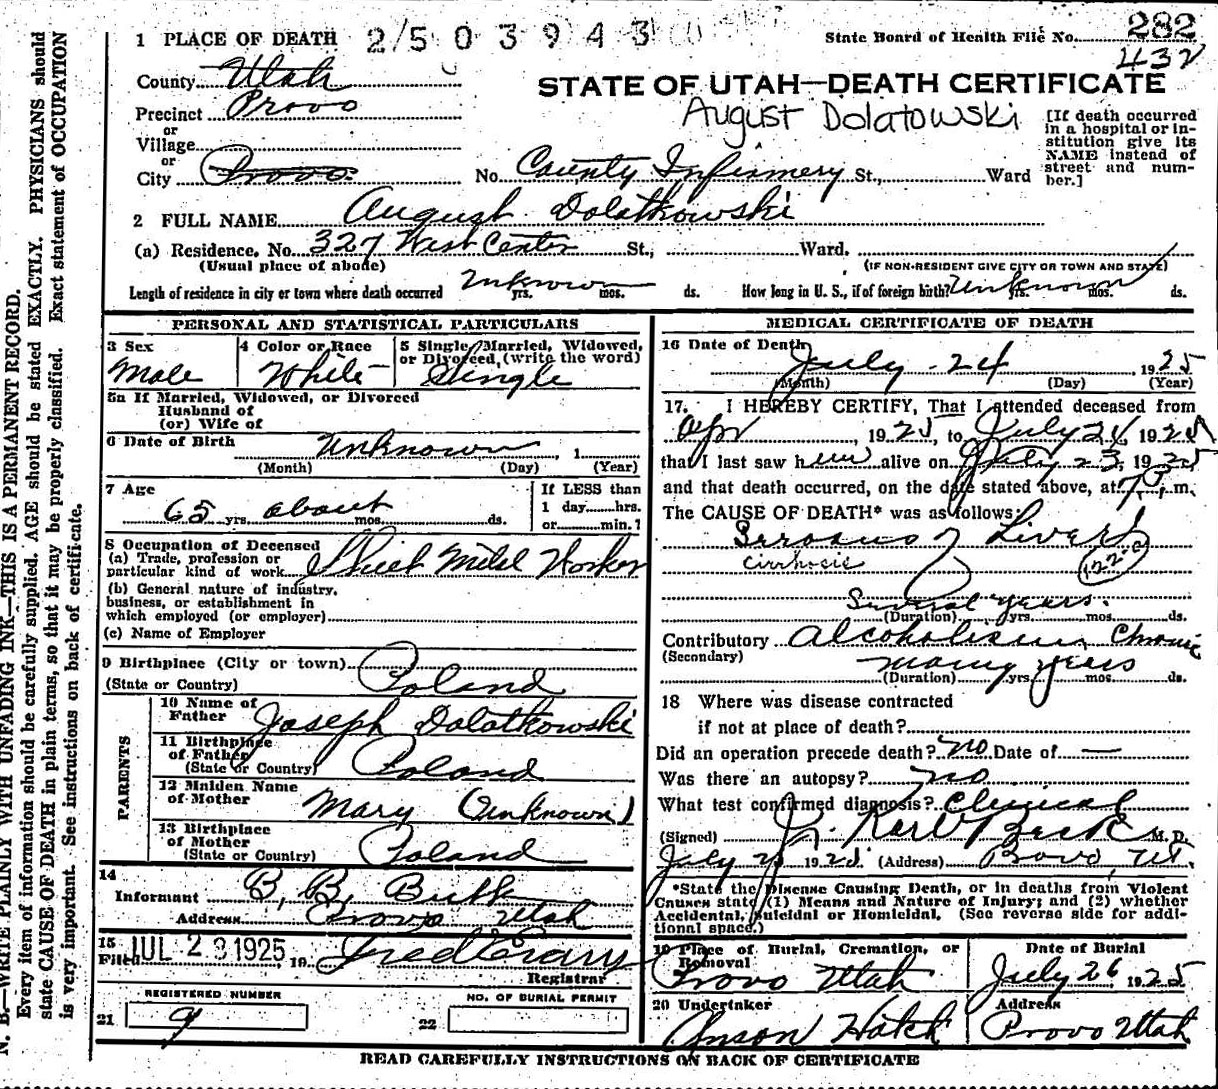 1 PLACE OF DEATH 2/503943
State Board of Health File No. 282
432
County Utah
STATE OF UTAH—DEATH CERTIFICATE
Precinct Provo
August Dolatowski
or
Village
or
City Provo
No. County Infirmery St., Ward
[If death occurred
in a hospital or in-
stitution give its
NAME instead of
street and num-
ber.]
2 FULL NAME August Dolatkowski
(a) Residence, No. 327 West Center St., Ward.
(Usual place of abode)
(IF NON-RESIDENT GIVE CITY OR TOWN AND STATE)
Length of residence in city or town where death occurred Unknown yrs. mos. ds.
How long in U. S., if of foreign birth? Unknown yrs. mos. ds.
PERSONAL AND STATISTICAL PARTICULARS
3 Sex
Male
4 Color or Race
White
5 Single, Married, Widowed,
or Divorced, (write the word)
Single
5a If Married, Widowed, or Divorced
Husband of
(or) Wife of
6 Date of Birth Unknown, 1
(Month) (Day) (Year)
7 Age
65 yrs. about mos. ds.
If LESS than
1 day hrs.
or min.?
8 Occupation of Deceased
(a) Trade, profession or
particular kind of work Worker
(b) General nature of industry,
business, or establishment in
which employed (or employer)
(c) Name of Employer
9 Birthplace (City or town) Poland
(State or Country)
PARENTS
10 Name of
Father Joseph Dolatkowski
11 Birthplace
of Father Poland
(State or Country)
12 Maiden Name
of Mother Mary (Unknown)
13 Birthplace
of Mother Poland
(State or Country)
14
Informant B. B.
Address Provo Utah
15
Filed JUL 2 1925, 19
Registrar
REGISTERED NUMBER
21 9
NO. OF BURIAL PERMIT
22
MEDICAL CERTIFICATE OF DEATH
16 Date of Death
July 24 1925
(Month) (Day) (Year)
17. I HEREBY CERTIFY, That I attended deceased from
Apr, 1925, to July 24, 1925
that I last saw him alive on July 23, 1925
and that death occurred, on the date stated above, at 7 P. m.
The CAUSE OF DEATH* was as follows:
of Liver
Cirrhosis
122
Several years.
(Duration) yrs. mos. ds.
Contributory Alcoholism, Chronic
(Secondary) many years
(Duration) yrs. mos. ds.
18 Where was disease contracted
if not at place of death?
Did an operation precede death? No Date of —
Was there an autopsy? no
What test confirmed diagnosis? Clinical
(Signed) J. Karl Beck M. D.
July 1925 (Address) Provo Ut.
*State the Disease Causing Death, or in deaths from Violent
Causes state (1) Means and Nature of Injury; and (2) whether
Accidental, Suicidal or Homicidal. (See reverse side for addi-
tional space.)
19 Place of Burial, Cremation, or
Removal
Provo Utah
Date of Burial
July 26 1925
20 Undertaker
Anson Hatch
Address
Provo Utah
READ CAREFULLY INSTRUCTIONS ON BACK OF CERTIFICATE
N. B.—WRITE PLAINLY WITH UNFADING INK—THIS IS A PERMANENT RECORD.
Every item of information should be carefully supplied. AGE should be stated EXACTLY. PHYSICIANS should
state CAUSE OF DEATH in plain terms, so that it may be properly classified. Exact statement of OCCUPATION
is very important. See instructions on back of certificate.